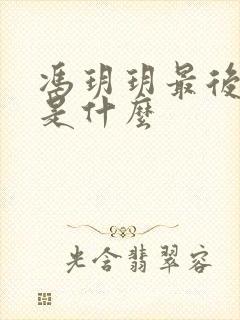 馮玥玥最後
是什麼
光含翡翠容